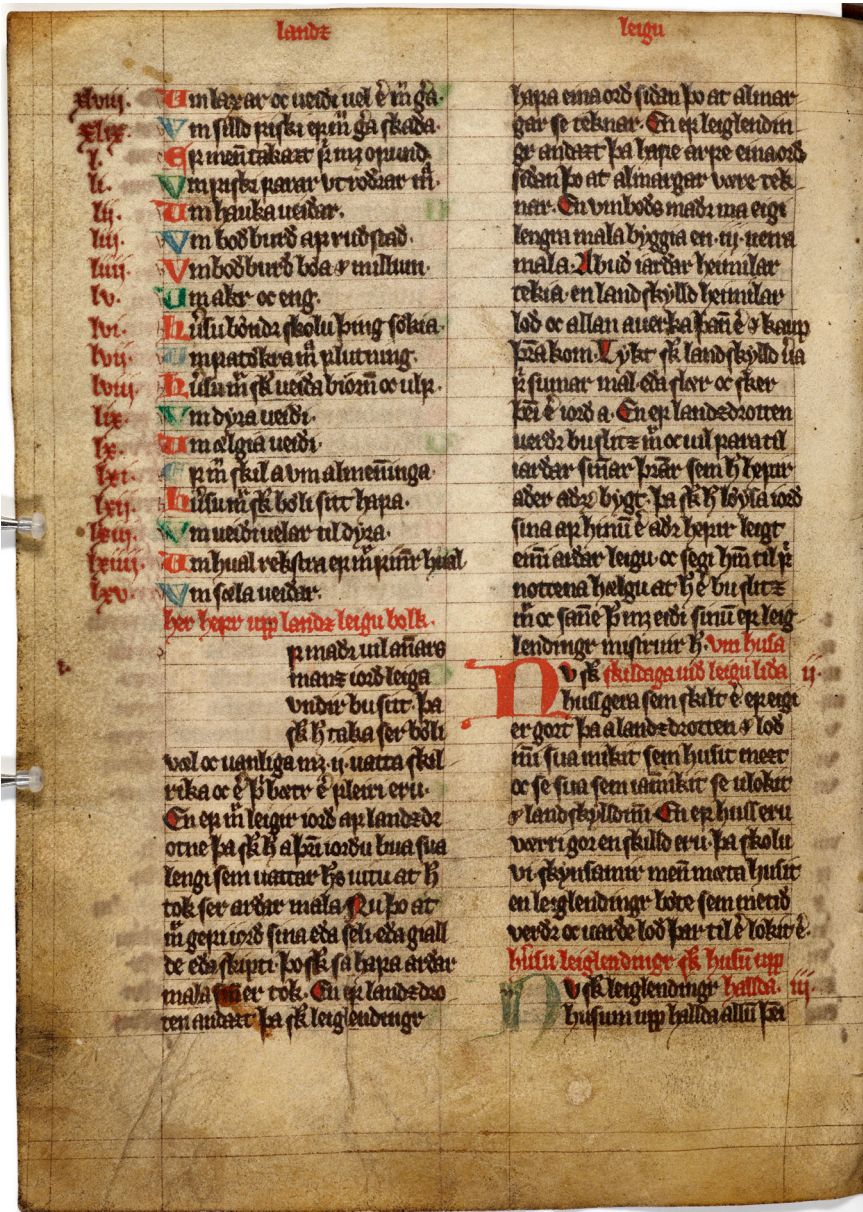 landz
leigu
xlviij. Um laxar oc ueidi uel ē m̄ ḡa.
xlix. Vm silld fiski ef m̄ ḡa skada.
l. Ef men̄ takazt f̄ mz ofund.
li. Vm fiski farar vt rodrar m̄.
lij. Um hauka ueidar.
liij. Vm bod burd af rudstad.
liiij. Vm bod burd bœa ꝛ millum.
lv. Um akr oc eng.
lvi. Hūsu bondr skolu þing sôkia.
lvij. Um fatôkra m̄ flutning.
lviij. Hūsu m̄ sk̄ ueida biorn̄ oc ulf.
lix. Vm dyra ueidi.
lx. Um œlgia ueidi.
lxi. Ef m̄ skil a vm almenninga.
lxij. Hūsu m̄ sk̄ bôli sitt hafa.
lxiij. Vm ueidiuelar til dyra.
lxiiij. Um hual rekstra ef m̄ finnr hual
lxv. Vm sœla ueidar.
her hefr upp landz leigu bolk.
f madr uil an̄ars
manz iord leiga
vndir bu sitt. þa
sk̄ h̄ taka ser bôli
vœl oc uanliga mz. ij. uatta skil
rika oc ē þ̄ bœtr ē fleiri eru.
En ef m̄ leigir iord af landzdr
otne þa sk̄ h̄ a þr̄i iordu bua sua
lengi sem uattar h̄s uitu at h̄
tok ser ardar mala Nu þo at
m̄ gefi iord sina eda seli. eda giall
de eda skipti. þo sk̄ sa hafa ardar
mala er tok. En ef landzdro
ten andazt þa sk̄ leiglendingr
hafa eina ord sidan þo at almar
gar se teknar. En ef leiglendin
gr andazt þa hafe arfe eina ord
sidan þo at almargar vere tek
nar. En vmbods madr ma eigi
lengra mala byggia en .iij. uetra
mala. Abud iardar heimilar
tekia. en landskylld heimilar
lod oc allan auerka þan̄ ē ꝛ kaup
þr̄a kom. Lykt sk̄ landskylld ūa
f̄ sumar mal. eda slœr oc sker
þei ē iord a. En ef landzdrotten
uerdr buslitz m̄ oc uil fara til
iardar sin̄ar þr̄ar sem h̄ hefir
ader adr bygt. þa sk̄ h̄ lôysa iord
sina af hinū ē adr hefir leigt
ein̄i ardar leigu. oc segi hm̄ til f̄
nottena hœlgu at h̄ ē buslitz
m̄ oc san̄e þ̄ mz eidi sinū ef leig
lendingr mistruir h̄. vm husa
Nv sk̄ skildaga uid leigulida ij.
hus gera sem skilt ē ef eigi
er gort þa a landzdrotten ꝛ lod
in̄i sua mikit sem husit mezt
oc se sua sem iam̄mikit se ulokit
ꝛ landskylldin̄i. En ef hus eru
vœrri gor en skilld eru. þa skolu
vi. skynsamir men̄ mœta husit
en leiglendingr bôte sem metid
verdr oc uarde lod þar til ē lokit ē.
hūsu leiglendingr sk̄ husū upp
Nv sk̄ leiglendingr hallda. iij.
husum upp hallda allū þei